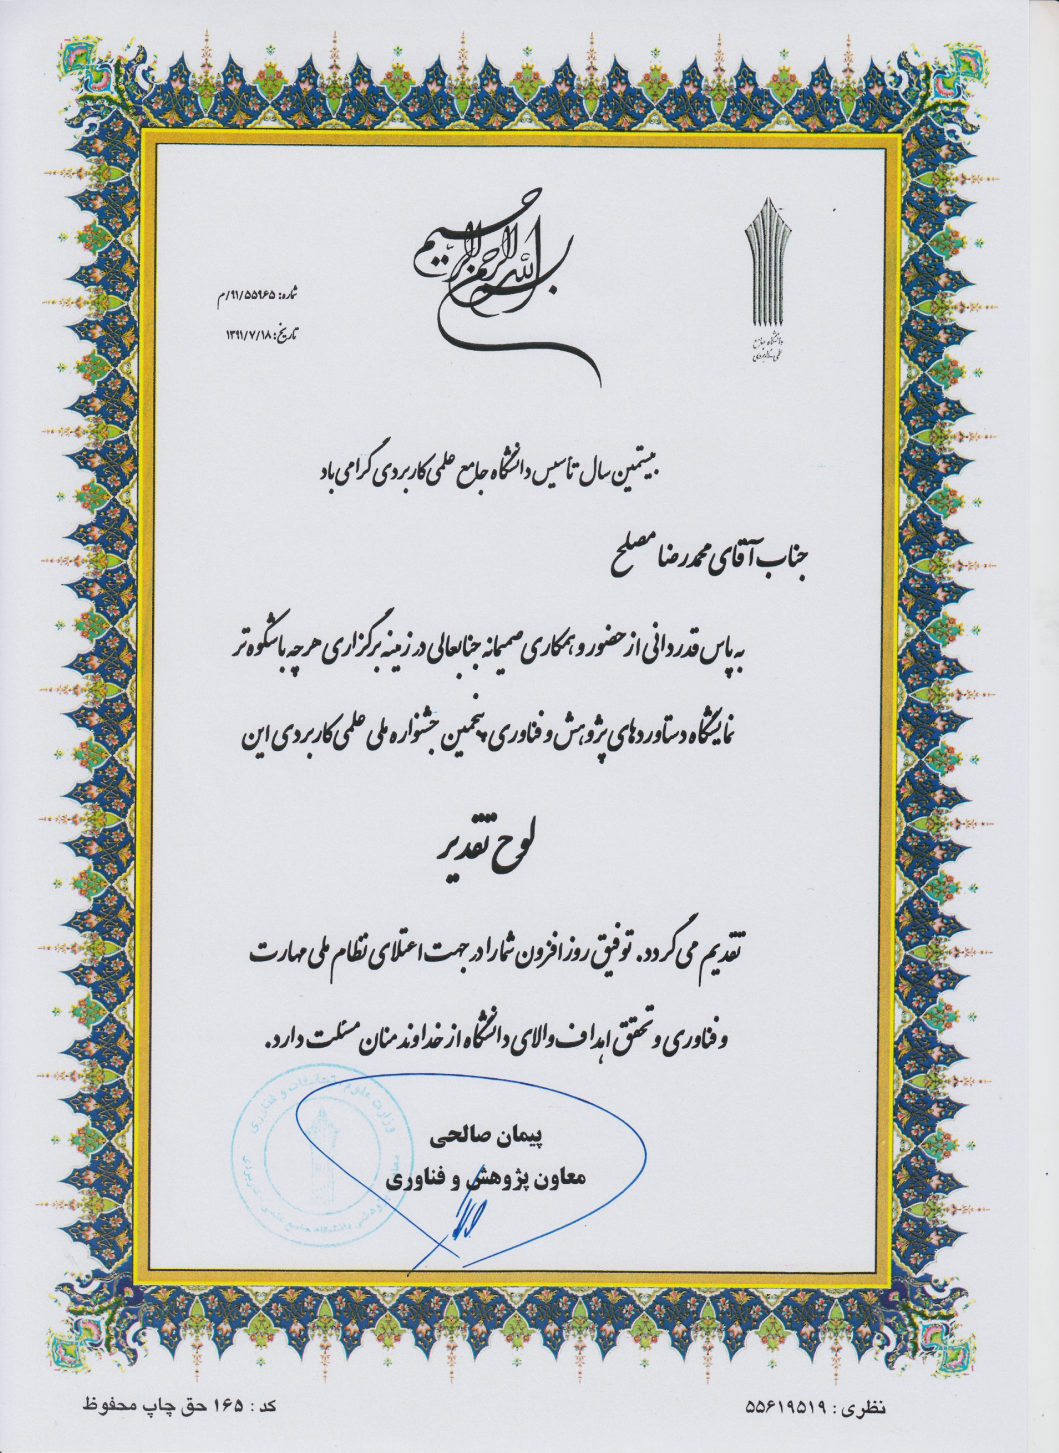 بسم الله الرحمن الرحیم
دانشگاه جامع
علمی کاربردی
شماره: ۹۱/۵۵۹۶۵/م
تاریخ: ۱۳۹۱/۷/۱۸
بیستمین سال تاسیس دانشگاه جامع علمی کاربردی گرامی باد
جناب آقای محمدرضا مصلح
به پاس قدردانی از حضور و همکاری صمیمانه جنابعالی در زمینه برگزاری هرچه باشکوه تر
نمایشگاه دستاوردهای پژوهش و فناوری پنجمین جشنواره ملی علمی کاربردی این
لوح تقدیر
تقدیم می گردد. توفیق روزافزون شما را در جهت اعتلای نظام ملی مهارت
و فناوری و تحقق اهداف والای دانشگاه از خداوند منان مسئلت دارد.
وزارت علوم تحقیقات و فناوری
پیمان صالحی
معاون پژوهش و فناوری
نظری : ۵۵۶۱۹۵۱۹
کد : ۱۶۵ حق چاپ محفوظ